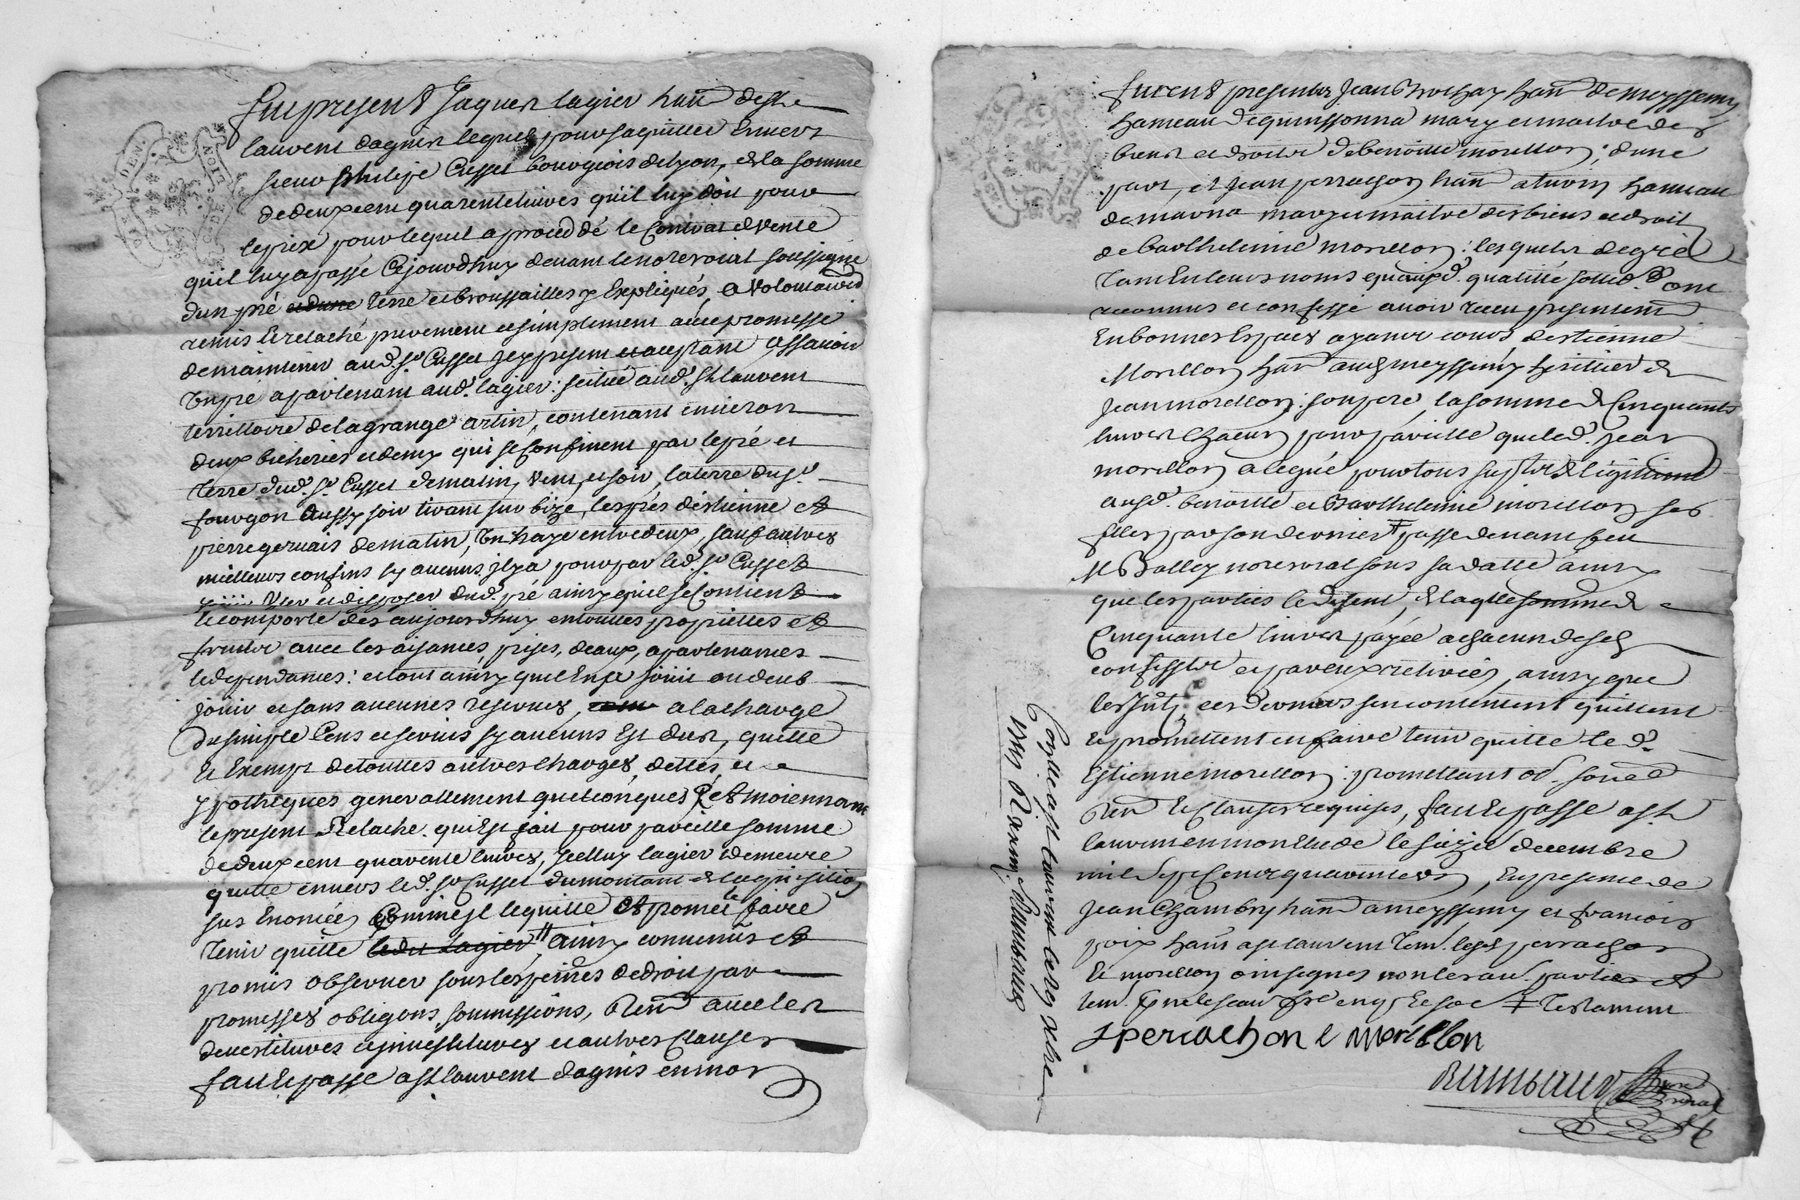 Fut present Jaques lagier hañ de St
laurent dagnis lequel pour saquitter Envers
sieur Philipe Cusset bourgeois de lyon, de la somme
de deux cent quarente livres quil luy doit pour
le prix pour lequel a procedé le Contrat de vente
quil luy a passé Cejourdhuy devant le nore roial soussigné
dun pré et dune terre et broussailles y Expliqués, a volontairemt
remis & relaché purement et simplement avec promesse
de maintenir audt sr Cusset Icy present et aceptant Assavoir
un pré apartenant audt lagier: scitué audt St laurent
territoire de la grange artin, contenant environ
deux bicherées et demy qui se Confinent par le pré et
terre dudt sr Cusset de matin, vent, et soir, la terre du sr
fourgon Aussy soir tirant sur bize, les prés destienne et
pierre gervais de matin, un haye entredeux, sauf autres
meilleurs confins sy aucuns il y a pour par ledt sr Cusset
user et disposer dudt pré ainsy quil se Contient
& comporte des aujourdhuy en toutes proprietes et
fruits avec les aisances, prises, deaux, apartenances
& dependances: et tout ainsy quil En a joüi ou deub
joüir et sans aucunes reserves, a la charge
du simple Cens et servis sy aucuns Est deub, quitte
& Exempt de touttes autres charges, dettes, et
ypotheques generallement quelconques & et moiennant
le present Relache quil Est fait pour pareille somme
de deux cent quarente livres, Icelluy lagier demeure
quitte envers ledt sr Cusset du montant de laquisition
sus Enoncée, Comme il le quitte et promet le faire
tenir quitte ledit lagier # ainsy convenus et
promis observer sous les peines de droit par
promesses obligons soumissions, Renon avec les
devestitures et investitures et autres Clauses
fait & passé a St laurent dagnis en mon
furent presents Jean Brochay hañ de meyssemy
hameau de quinssonna mary et maitre des
biens et droits de benoitte morellon; dune
part, et Jean perrachon hañ a turin hameau
de marna mary et maitre des biens et droits
de barthelemie morellon: lesquels de gré
tant En leurs noms quauxd. qualités sollid. ont
reconnus et confessé avoir receu presentemt
En bonnes Espaces ayant cours destienne
Morellon hañ aud meyssemy heritier de
Jean morellon: son pere, la somme de Cinquante
livres Chacun pour pareille que led. Jean
morellon a legué pour tous ses droits de legitime
ausd. benoitte et Barthelemie morellon ses
filles par son dernier # passé devant feu
Me Balley nore roial sous sa datte ainsy
que les parties le disent, & laqlle somme de
Cinquante livres payée a chacun desd
confessts et par eux retirées, ainsy que
les sud. ces derniers sen contentent quittent
& promettent en faire tenir quitte le d.
Estienne morellon: promettant obl. soum
Ren & clauses requises, fait & passé a St
laurent en mon Etude le seize decembre
mil sept Cent quarante trois, En presence de
Jean Chambry hañ a meyssemy et francois
poix hañ a St laurent tem. lesd perrachon
& morellon ont signés non les aut parties et
tem. pr ne le scavoir de ce enquis et soe # testament
J perrachon E morellon
Rambaud
Conllé a St laurent le 29 xbre
1743. R douze sols Rambaud